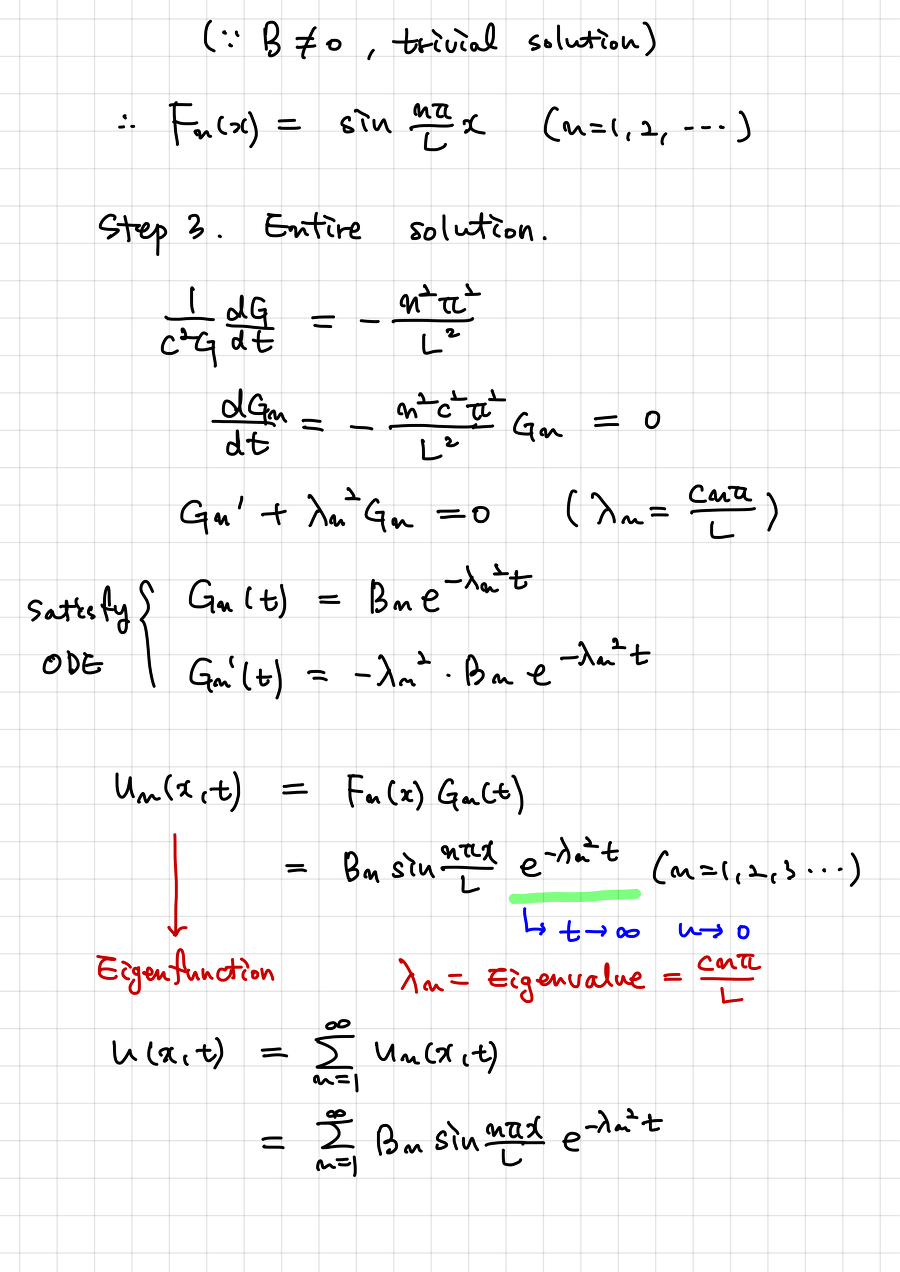 (∵ B ≠ 0 , trivial solution)
∴ Fn(x) = sin nπ/L x (n=1, 2, ⋯)
Step 3. Entire solution.
1/(c²G) dG/dt = - n²π²/L²
dGn/dt = - n²c²π²/L² Gn = 0
Gn' + λn² Gn = 0 (λn = cnπ/L)
Satisfy ODE { Gn(t) = Bn e^(-λn²t)
Gn'(t) = -λn² · Bn e^(-λn²t)
Un(x,t) = Fn(x) Gn(t)
= Bn sin nπx/L e^(-λn²t) (n=1, 2, 3 ⋯)
↳ t→∞ u→0
Eigenfunction λn = Eigenvalue = cnπ/L
u(x,t) = ∑_{n=1}^{∞} Un(x,t)
= ∑_{n=1}^{∞} Bn sin nπx/L e^(-λn²t)